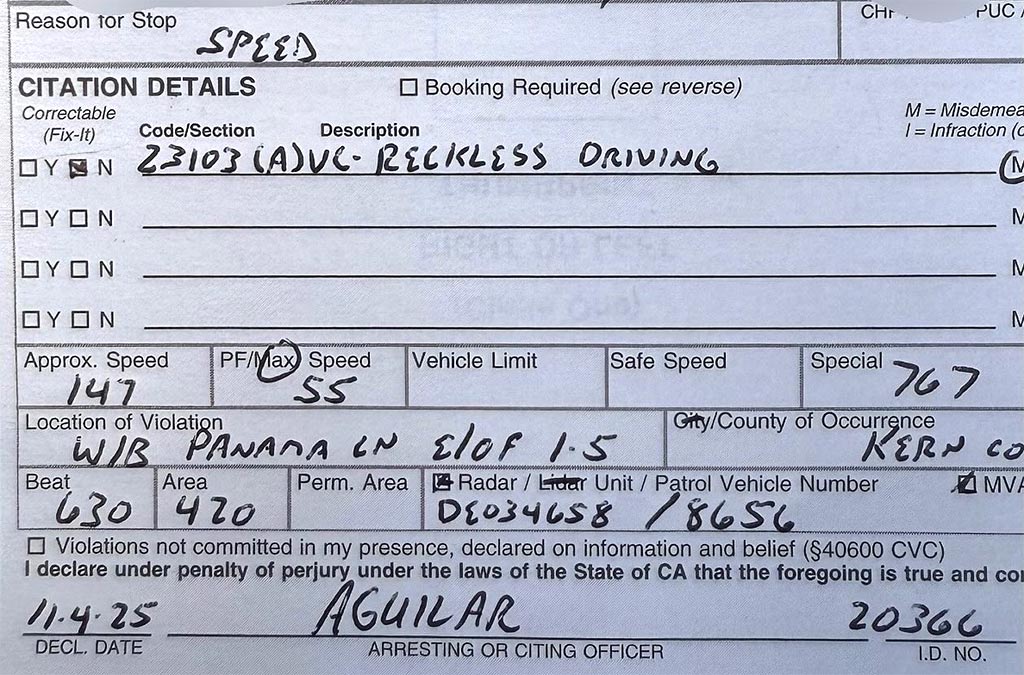 Reason for Stop
SPEED
CITATION DETAILS
Booking Required (see reverse)
Correctable
(Fix-It)
Code/Section Description
M = Misdemea
I = Infraction (
Y N 23103(A)VC- RECKLESS DRIVING M
Y N M
Y N M
Y N M
Approx. Speed PF/Max Speed Vehicle Limit Safe Speed Special
147 55 767
Location of Violation City/County of Occurrence
W/B PANAMA LN E/OF I-5 KERN CO
Beat Area Perm. Area Radar / Lidar Unit / Patrol Vehicle Number MVA
630 420 DE034658 /8656
Violations not committed in my presence, declared on information and belief (§40600 CVC)
I declare under penalty of perjury under the laws of the State of CA that the foregoing is true and cor
11.4.25 AGUILAR 20366
DECL. DATE ARRESTING OR CITING OFFICER I.D. NO.